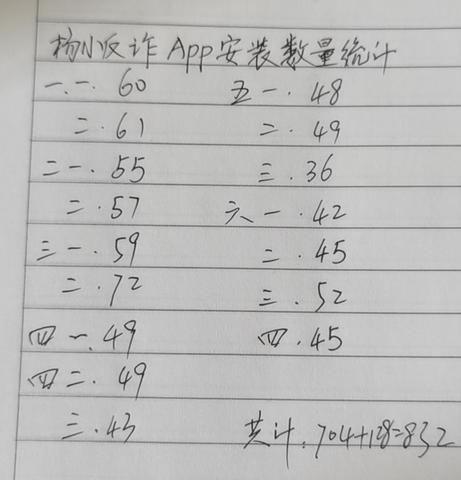 杨小反诈App安装数量统计
一一. 60
二. 61
二一. 55
二. 57
三一. 59
二. 72
四一. 49
四二. 49
三. 43
五一. 48
二. 49
三. 36
六一. 42
二. 45
三. 52
四. 45
共计. 704+128=832